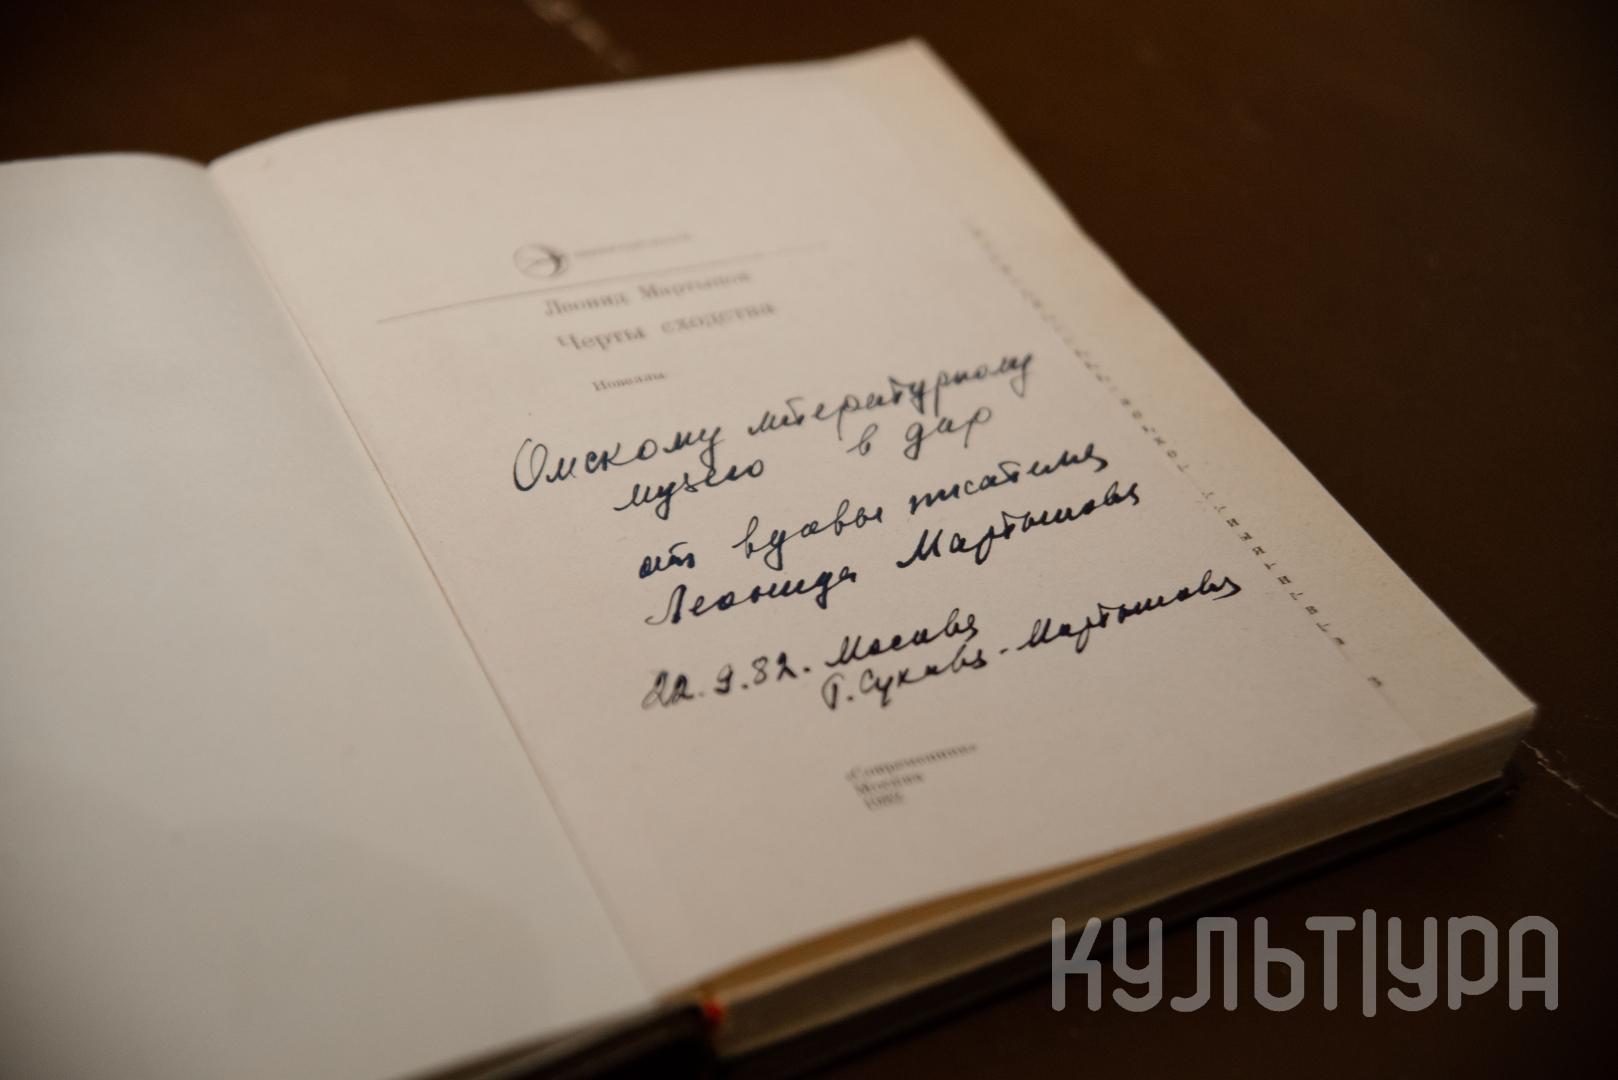 Леонид Мартынов
Черты сходства
Новеллы
Омскому литературному
музею в дар
от вдовы писателя
Леонида Мартынова
22.9.82. Москва
Г. Сухова-Мартынова
«Современник»
Москва
КУЛЬТУРА